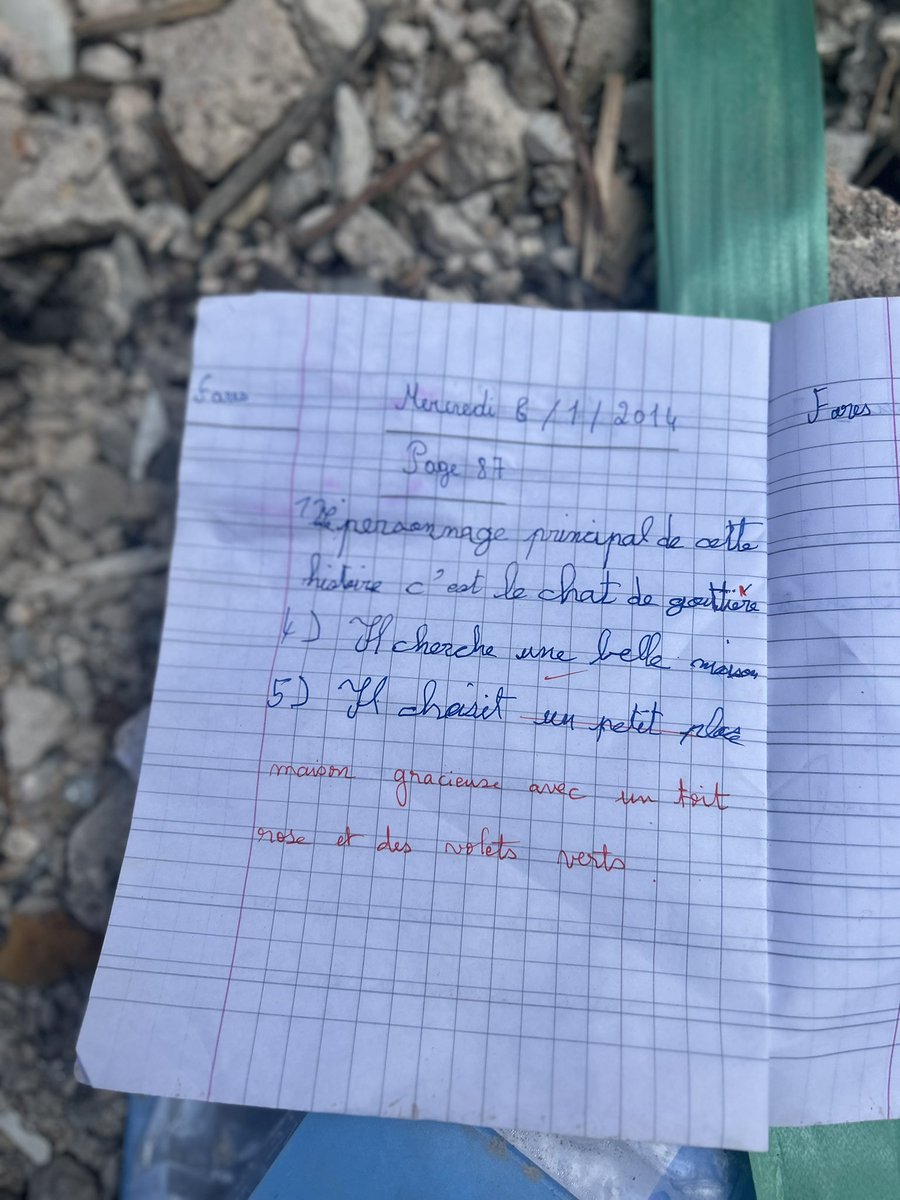 Fares
Mercredi 8/1/2014
Fares
Page 87
1) Le personnage principal de cette
histoire c'est le chat de gouttière
4) Il cherche une belle maison
5) Il choisit un petit place
maison gracieuse avec un toit
rose et des volets verts.